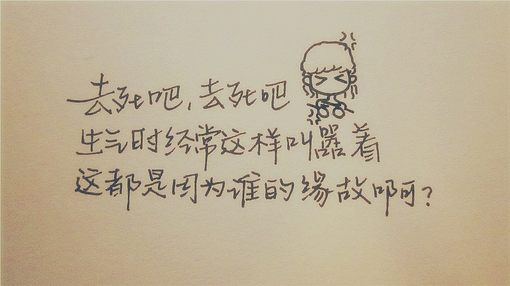 去死吧,去死吧
生气时经常这样叫嚣着
这都是因为谁的缘故啊?